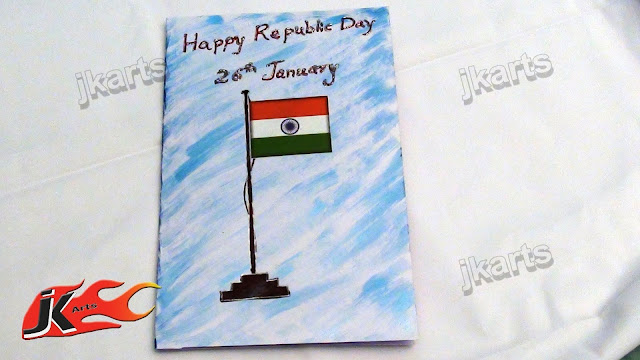 Happy Republic Day
26th January
jkarts
jkarts
jkarts
JK Arts